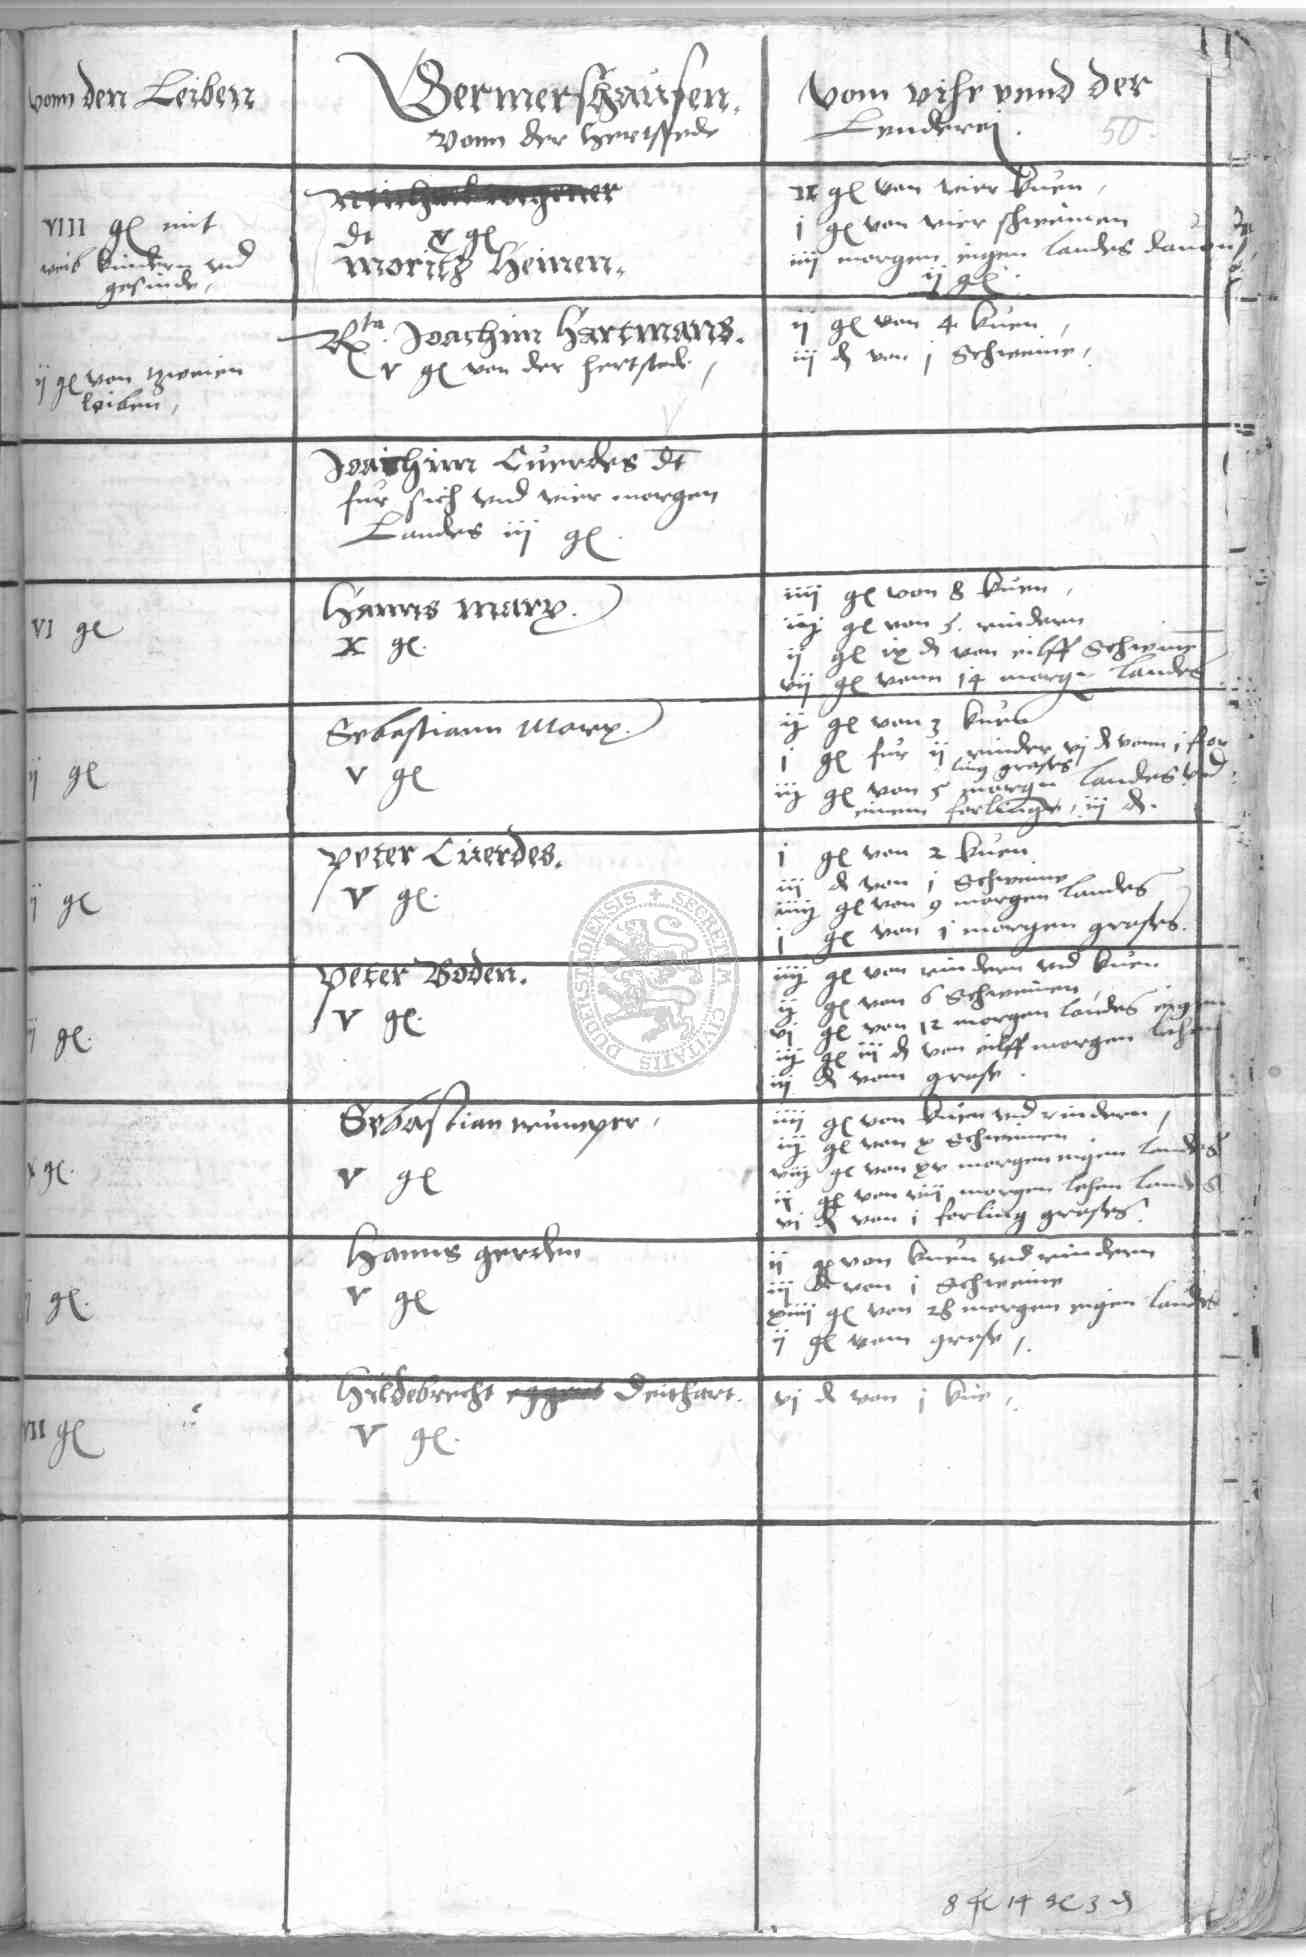 vonn den Leiben
Germershausen.
Vonn der Hertstede
Vom vihe vnnd der
Lenderei.
50.
VIII gl mit
weib kindern vnd
gesinde,
dt v gl
Moritz Heinen.
ii gl von vier kuen,
i gl von vier schweinen
iiii morgen eigen landes dauon
ij gl
ij gl von zweien
leiben,
Rta. Joachim Hartmans.
v gl von der hertstede,
ij gl von 4 kuen,
iij d von j Schweine,
Joachim Cuerdes dt
fur sich vnd vier morgen
Landes iij gl.
VI gl
Hanns Marx.
X gl.
iiij gl von 8 kuen,
iij gl von 5. rindern
ij gl ix d von eilff Schweine
vij gl vonn 14 morgen Landes
ij gl
Sebastiann Marx.
v gl
ij gl von 3 kuen
j gl fur ij rinder vj d vonn j for
ling grases
iij gl von 5 morgen Landes vnd
einem forlinge, iij d.
ij gl
Peter Cuerdes.
V gl.
j gl von 2 kuen
iij d von j Schweine
iiij gl von 9 morgen landes
j gl von 1 morgen grases.
ij gl.
Peter Boden.
V gl.
iiij gl von rindern vnd kuen
ij gl von 6 Schweinen,
vj gl von 12 morgen landes eigen
iij gl iij d von eilff morgen lehen
iij d vom grase.
DUDERSTADIENSIS + SECRETUM CIVITATIS
x gl.
Sebastian wümper,
v gl
iiij gl von kuen vnd rindern,
iij gl von x Schweinen
viij gl von xv morgen eigen landes
ij gl von viij morgen lehen landes
vj d von i forling grases.
ij gl.
Hanns gerden
v gl
ij gl von kuen vnd rindern
iij d von j Schweine
xiiij gl von 28 morgen eigen landes
ij gl vom grase,
VII gl
Hildebrecht Deithart.
V gl.
vj d von j kue,
8 fl 14 gl 3 d